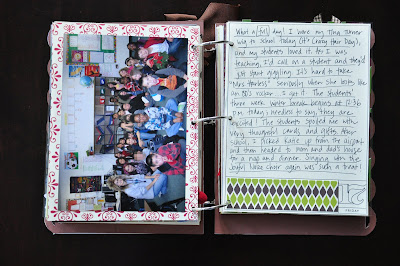 What a full day! I wore my Tina Turner
wig to school today (it's Crazy Hair Day)
and my students loved it. As I was
teaching, I'd call on a student and they'd
just start giggling. It's hard to take
seriously when she looks like
an 80's rocker. I get it. The students'
three week winter break begins at 2:36
p.m. today; needless to say, they are
excited! The students spoiled me with
very thoughtful cards and gifts. After
school, I picked Katie up from the airport
and then headed to mom and dad's house
for a nap and dinner. Singing with the
choir again was such a treat!
FRIDAY